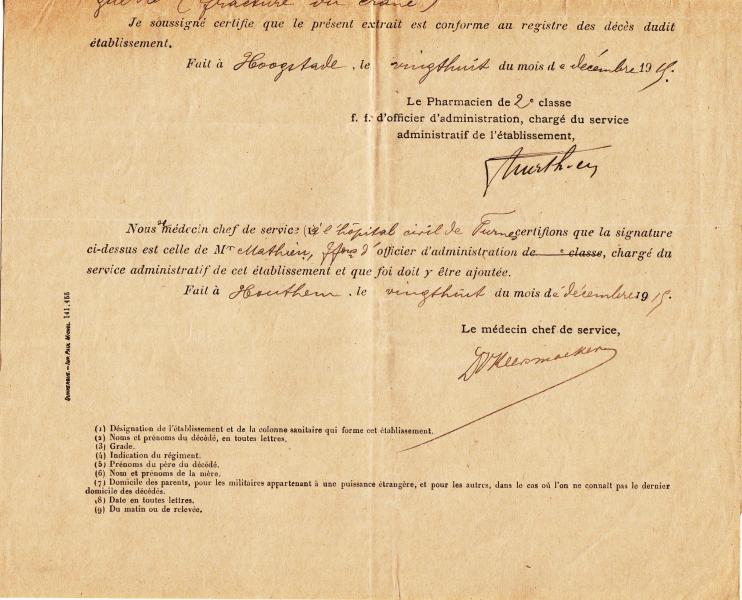 guerre (fracture du crâne)
Je soussigné certifie que le présent extrait est conforme au registre des décès dudit
établissement.
Fait à Hoogstade, le vingthuit du mois de décembre 1915.
Le Pharmacien de 2e classe
f. f. d'officier d'administration, chargé du service
administratif de l'établissement,
Nous médecin chef de service (1) de l'hôpital civil de Furnes certifions que la signature
ci-dessus est celle de Mr Mathieu, ffons d'officier d'administration de e classe, chargé du
service administratif de cet établissement et que foi doit y être ajoutée.
Fait à Houthem, le vingthuit du mois de décembre 1915.
Le médecin chef de service,
Dunkerque. — Imp. Paul Michel 141.455
(1) Désignation de l'établissement et de la colonne sanitaire qui forme cet établissement.
(2) Noms et prénoms du décédé, en toutes lettres.
(3) Grade.
(4) Indication du régiment.
(5) Prénoms du père du décédé.
(6) Nom et prénoms de la mère.
(7) Domicile des parents, pour les militaires appartenant à une puissance étrangère, et pour les autres, dans le cas où l'on ne connaît pas le dernier
domicile des décédés.
(8) Date en toutes lettres.
(9) Du matin ou de relevée.